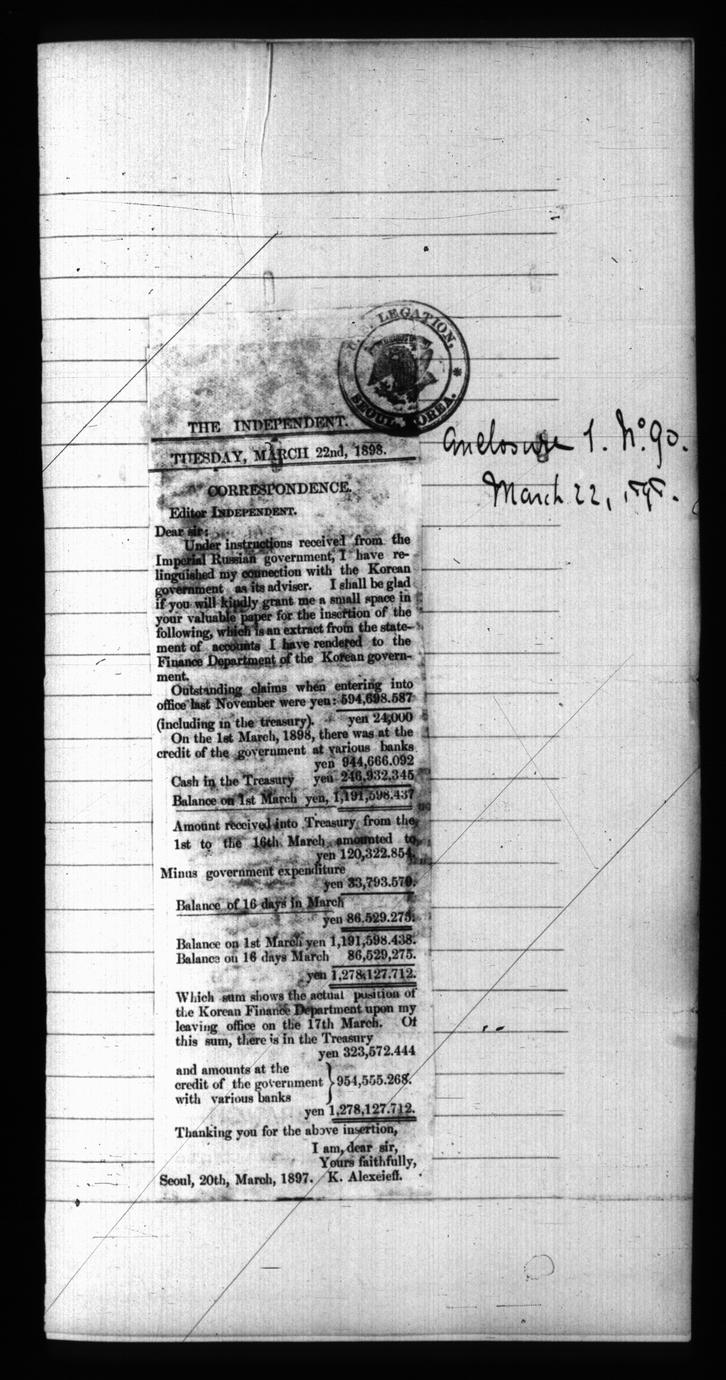 LEGATION,
SEOUL, KOREA.
THE INDEPENDENT.
TUESDAY, MARCH 22nd, 1898.
Enclosure 1. No. 90.
March 22, 1898.
CORRESPONDENCE.
Editor INDEPENDENT.
Dear sir:
Under instructions received from the
Imperial Russian government, I have re-
linguished my connection with the Korean
government as its adviser. I shall be glad
if you will kindly grant me a small space in
your valuable paper for the insertion of the
following, which is an extract from the state-
ment of accounts I have rendered to the
Finance Department of the Korean govern-
ment.
Outstanding claims when entering into
office last November were yen: 594,698.587
(including in the treasury). yen 24,000
On the 1st March, 1898, there was at the
credit of the government at various banks
yen 944,666.092
Cash in the Treasury yen 246,932,345
Balance on 1st March yen, 1,191,598.437
Amount received into Treasury from the
1st to the 16th March amounted to
yen 120,322.854
Minus government expenditure
yen 33,793.579.
Balance of 16 days in March
yen 86.529.275.
Balance on 1st March yen 1,191,598.438.
Balance on 16 days March 86,529,275.
yen 1,278,127.712.
Which sum shows the actual position of
the Korean Finance Department upon my
leaving office on the 17th March. Of
this sum, there is in the Treasury
yen 323,572.444
and amounts at the
credit of the government } 954,555.268.
with various banks
yen 1,278,127.712.
Thanking you for the above insertion,
I am, dear sir,
Yours faithfully,
Seoul, 20th, March, 1897. K. Alexeieff.